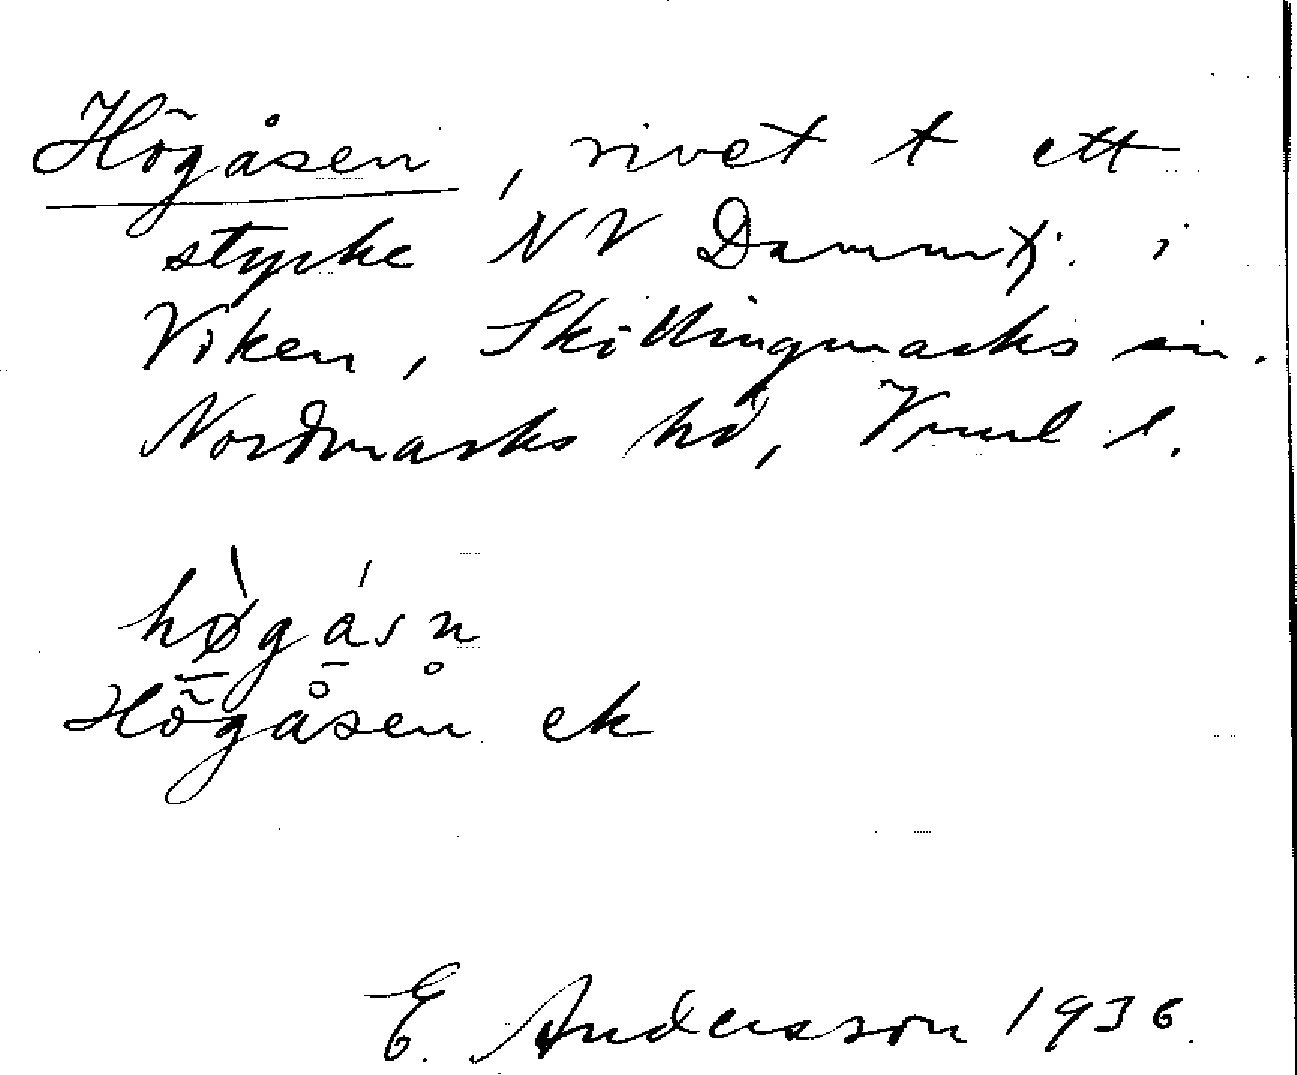 Högåsen, rivet t ett
stycke NV Dammtj. i
Viken, Skillingmarks sn.
Nordmarks hd, Vrml l.
hø̀gásn̥
Högåsen ek
E. Andersson 1936.